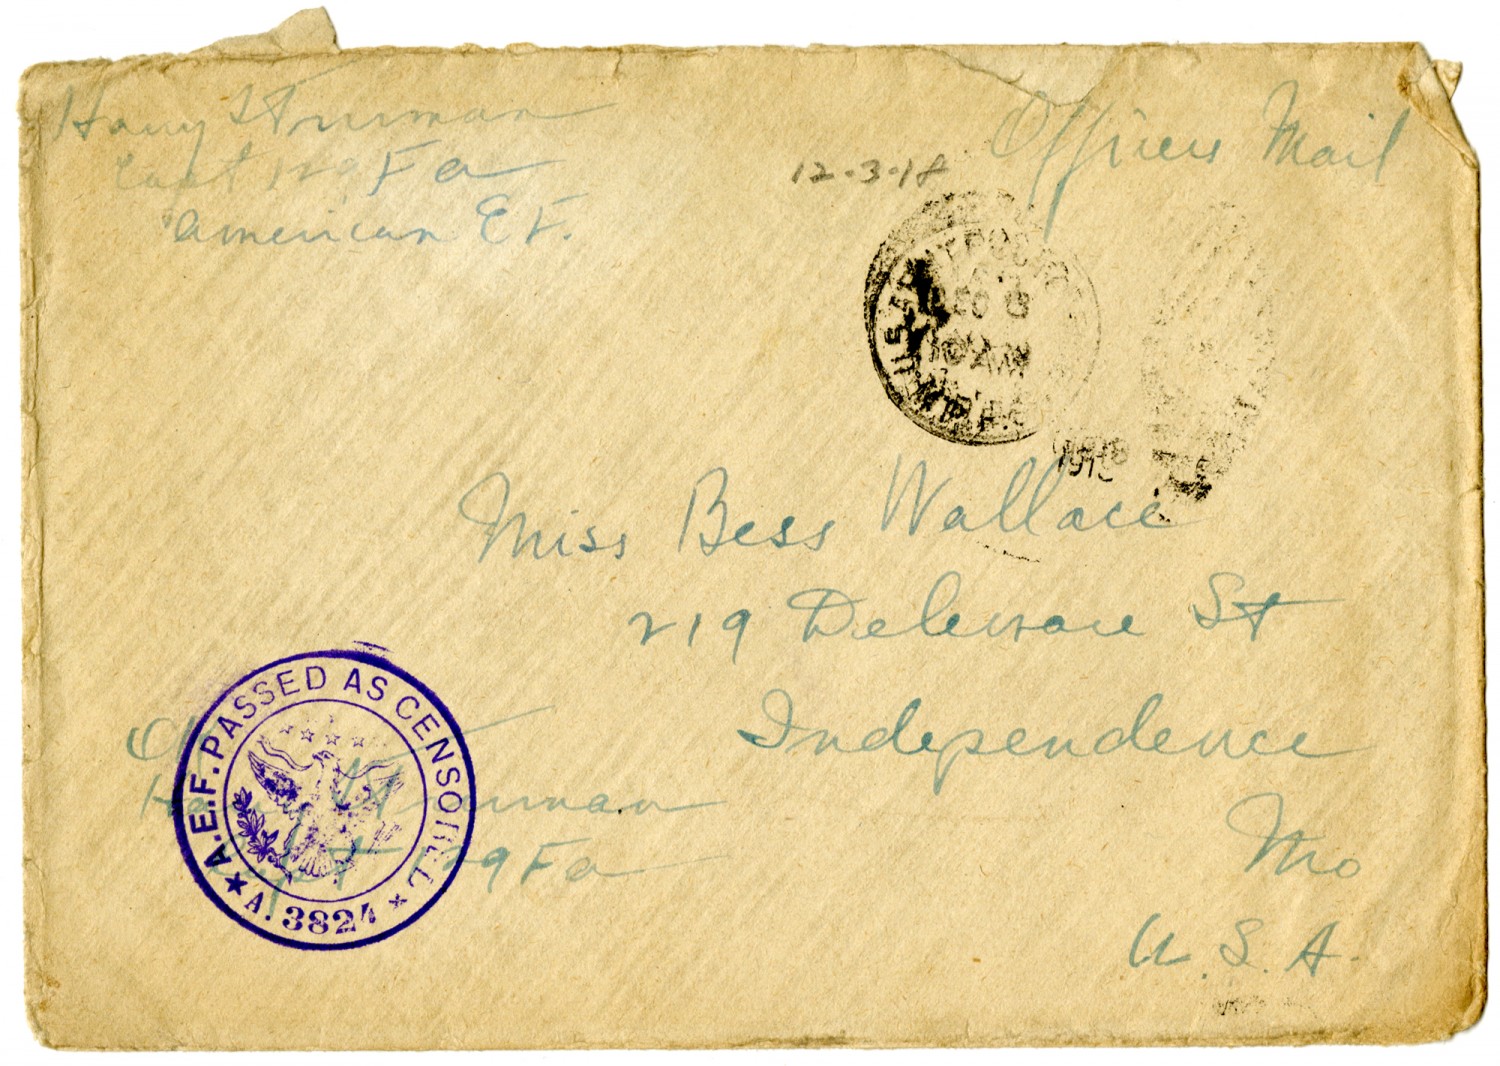 Harry S Truman
Capt 129 Fa
American E F.
Officers Mail
12-3-18
U.S. ARMY POST
DEC 8
10 AM
M.P.E.S.
1918
Miss Bess Wallace
219 Delaware St
Independence
Mo
U.S.A.
A.E.F. PASSED AS CENSORED
A. 3824
Harry S Truman
Capt 129 Fa